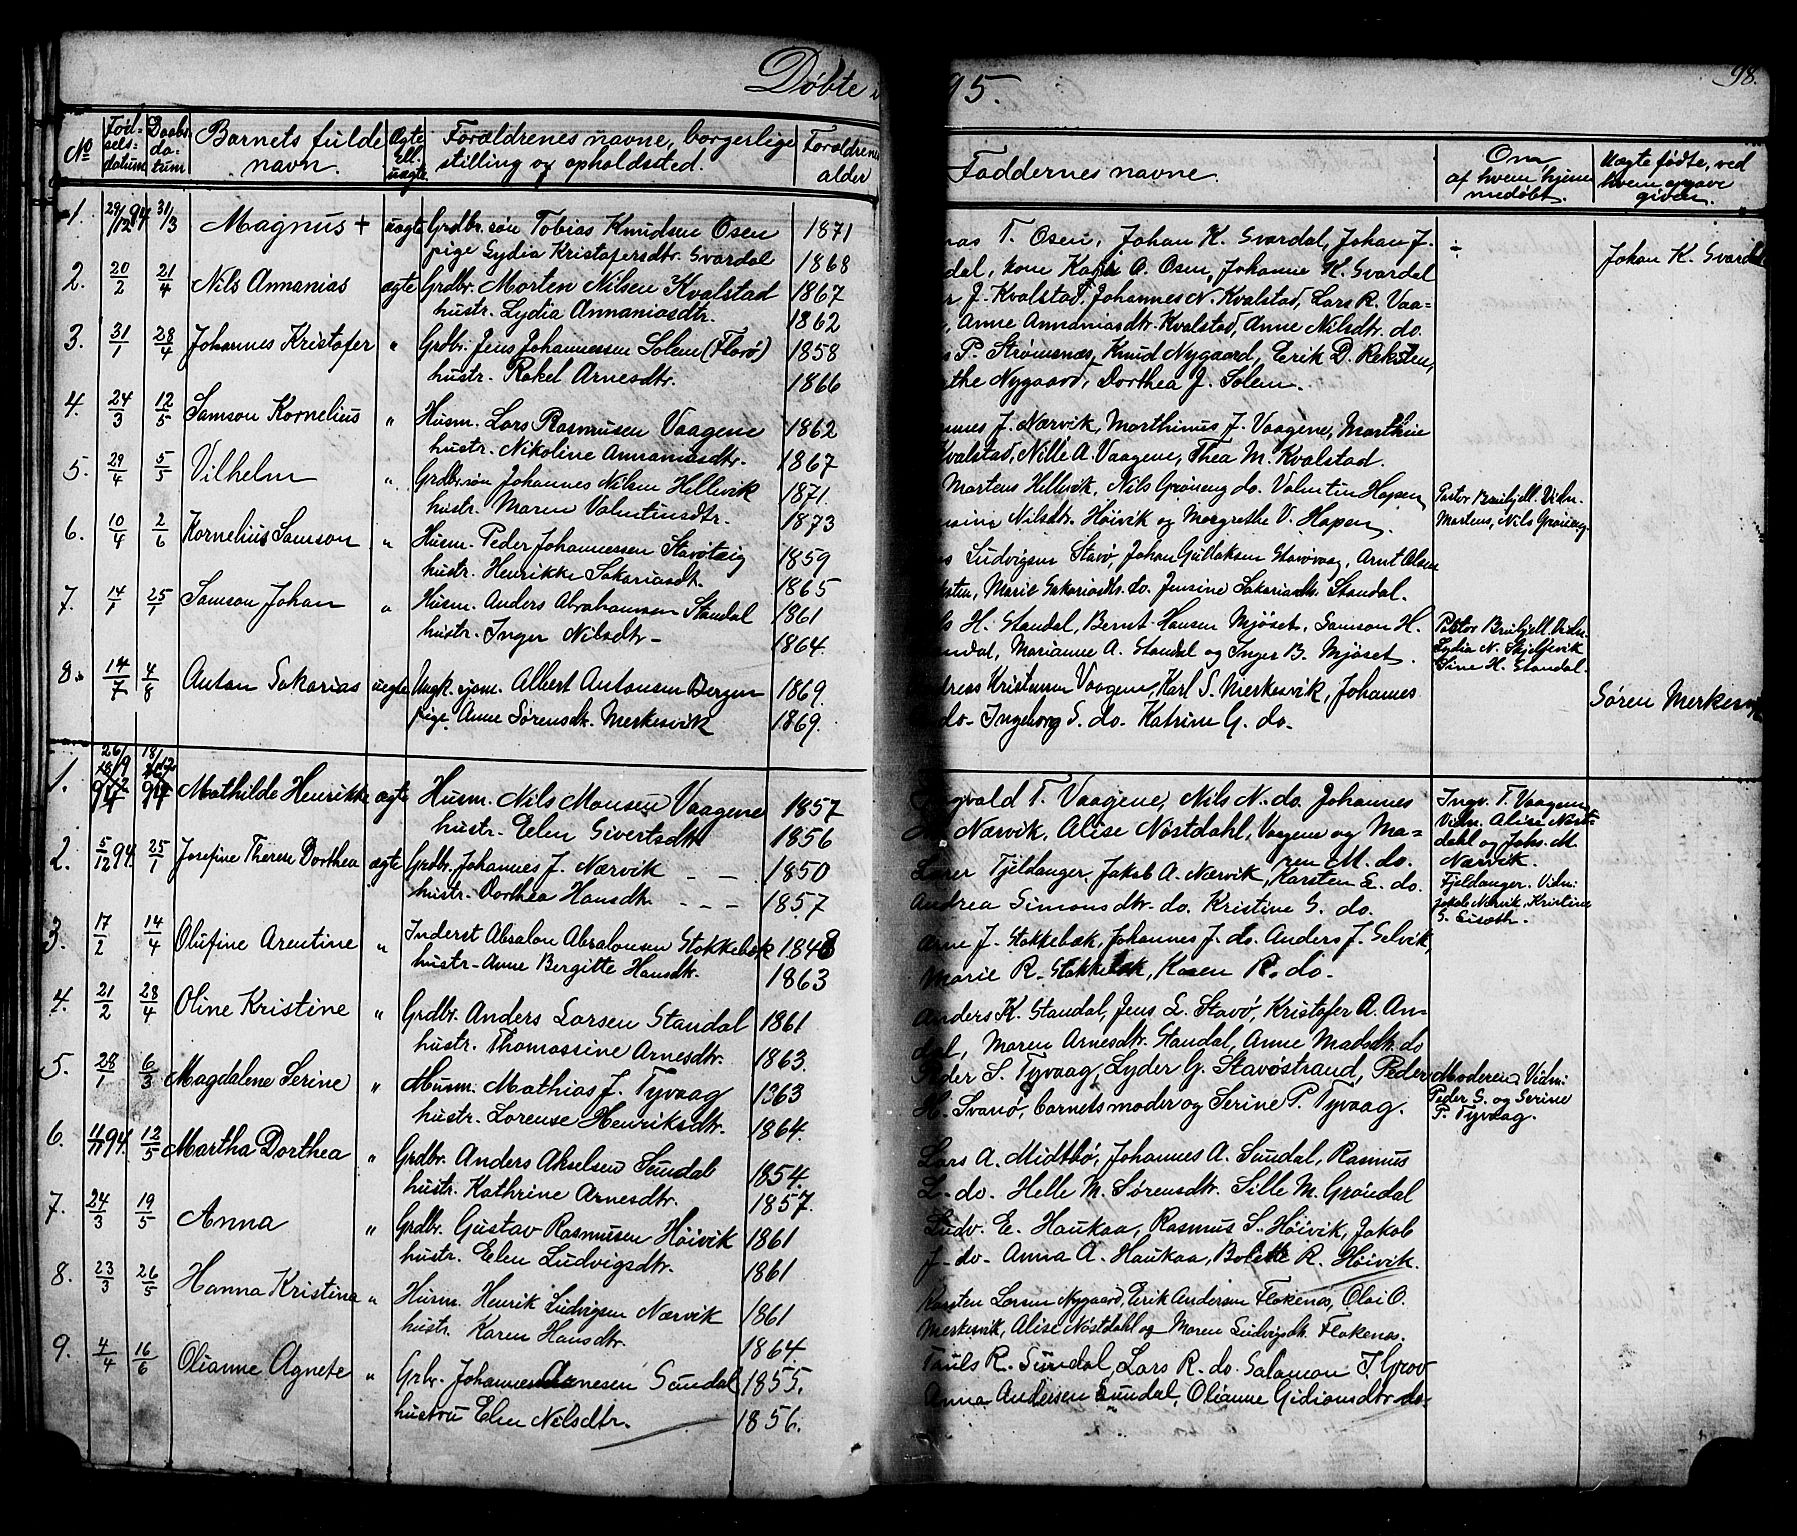 Døbte
95.
98.
No
Fød-
sels-
datum
Daabs-
da-
tum
Barnets fulde
navn.
Ægte
Ell.
uægte
Forældrenes navne, borgerlige
stilling og opholdsted.
Forældrenes
alder
Faddernes navne.
Om
af hvem hjem-
medöbt.
Uægte fødte, ved
hvem opgave
given.
1. 29/12 94. 31/3 Magnus + uægte Grdbr. søn Tobias Knudsen Osen 1871
pige Lydia Kristofersdtr. Svardal 1868
T. Osen, Johan K. Svardal, Johan J.
kone Kari A. Osen, Johanne K. Svardal
Johan K. Svardal
2. 20/2 21/4 Nils Annanias ægte Grdbr. Morten Nilsen Kvalstad 1867
hustr. Lydia Annaniasdtr. 1862
J. Kvalstad, Johannes N. Kvalstad, Lars R. Vaa=
Anne Annaniasdtr. Kvalstad, Anne Nilsdtr. do.
3. 31/1 28/4 Johannes Kristofer " Grdbr. Jens Johannessen Solem (Florø) 1858
hustr. Rakel Arnesdtr. 1866
P. Strømsnæs, Knud Nygaard, Erik D. Reksten,
Nygaard, Dorthea J. Solem.
4. 24/3 12/5 Samson Kornelius " Husm. Lars Rasmusen Vaagene 1862
hustr. Nikoline Annaniasdtr. 1867
J. Nærvik, Marthinus J. Vaagene, Marthin
Kvalstad, Nille A. Vaagene, Thea M. Kvalstad.
5. 29/4 5/5 Vilhelm " Grdbr. søn Johannes Nilsen Hellevik 1871.
hustr. Maren Valentinsdtr. 1873
Martens Hellevik, Nils Grøneng do. Valentin Hopen
Nilsdtr. Høivik og Margrethe V. Hopen.
Pastor Vidn.
Martens, Nils Grøneng.
6. 10/4 2/6 Kornelius Samson " Husm. Peder Johannessen 1859
hustr. Henrikke Sakariasdt. 1865
Ludvigsen Stavø, Johan Gullaksen Stavøvaag, Arnt Olsen
Marie Sakariasdtr. do. Jensine Sakariasdtr. Standal.
7. 14/1 25/1 Samson Johan " Husm. Anders Abrahamsen Standal 1861
hustr. Inger Nilsdtr - 1864.
H. Standal, Bernt Hansen Mjøset, Samson H.
Marianne A. Standal og Inger B. Mjøset.
Pastor Vidn.
Lydia N.
Sine H. Standal.
8. 14/7 4/8 Anton Sakarias uægte Ungk. sjøm. Albert Antonsen Bergen 1869.
pige Anne Sørensdtr. Merkesvik 1869.
Kristensen Vaagene, Karl S. Merkesvik, Johannes
do- Ingeborg S. do- Katrine G. do.
Søren Merkesvik
1. 26/9 94 Mathilde Henrikke ægte Husm. Nils Monsen Vaagene 1857
hustr. Elen Sivertsdtr 1856
T. Vaagene, Nils N. do. Johannes
Nærvik, Alise Nøstdahl, Vaagene og Ma=
ren M. do.
Ingv. T. Vaagene
Vidn. Alise Nøst=
dahl og Johs. M.
Nærvik.
2. 5/12 94. 25/1 Josefine Therese Dorthea ægte Grdbr. Johannes J. Nærvik - - 1850
hustr. Dorthea Hansdtr. - - - 1857
Lærer Fjeldanger, Jakob A. Nærvik, Karsten L. do.
Andrea Simonsdtr. do. Kristine S. do.
Fjeldanger. Vidn.
Jakob Nærvik, Kristine
S.
3. 17/2 14/4 Olufine Arentine " Inderst Absalon Absalonsen Stokkebæk 1848
hustr- Anne Bergitte Hansdtr. 1863
Arne J. Stokkebæk, Johannes J. do. Anders J. Selvik,
Marie R. Stokkebæk, Karen R. do-
4. 21/2 28/4 Oline Kristine " Grdbr. Anders Larsen Standal 1861
hustr. Thomassine Arnesdtr. 1863.
Anders K. Standal, Jens L. Stavø, Kristofer A. An-
dal, Maren Arnesdtr. Standal, Anne Madsdtr. do
5. 28/1 6/3 Magdalene Serine " Husm. Mathias J. Tyvaag 1363
hustr. Lorense Henriksdtr. 1864.
Peder S. Tyvaag, Lyder G. Stavøstrand, Peder
H. Svanø, barnets moder og Serine P. Tyvaag.
Moderen. Vidn:
Peder S. og Serine
P. Tyvaag.
6. 94. 12/5 Martha Dorthea " Grdbr. Anders Akselsen Sundal 1854.
hustr. Kathrine Arnesdtr. 1857.
Lars A. Midtbø, Johannes A. Sundal, Rasmus
L- do. Helle M. Sørensdtr. Sille M. Grøndal
7. 24/3 19/5 Anna " Grdbr. Gustav Rasmusen Høivik 1861
hustr. Elen Ludvigsdtr. 1861
Ludv. E. Haukaa, Rasmus S. Høivik, Jakob
J- do- Anna A. Haukaa, Bolette R. Høivik.
8. 23/3 26/5 Hanna Kristina " Husm. Henrik Ludvigsen Nærvik 1861
hustr. Karen Hansdtr. 1864
Karsten Larsen Nygaard, Erik Andersen Flokenæs, Olai O.
Merkesvik, Alise Nøstdahl og Maren Ludvigsdtr. Flokenæs.
9. 4/4 16/6 Olianne Agnete " Grbr. Johannes Arnesen Sundal 1855.
hustru Elen Nilsdtr. 1856.
R. Sundal, Lars R. do. Salamon J. Grov
Anna Andersen Sundal, Olianne Gidionsdtr do-